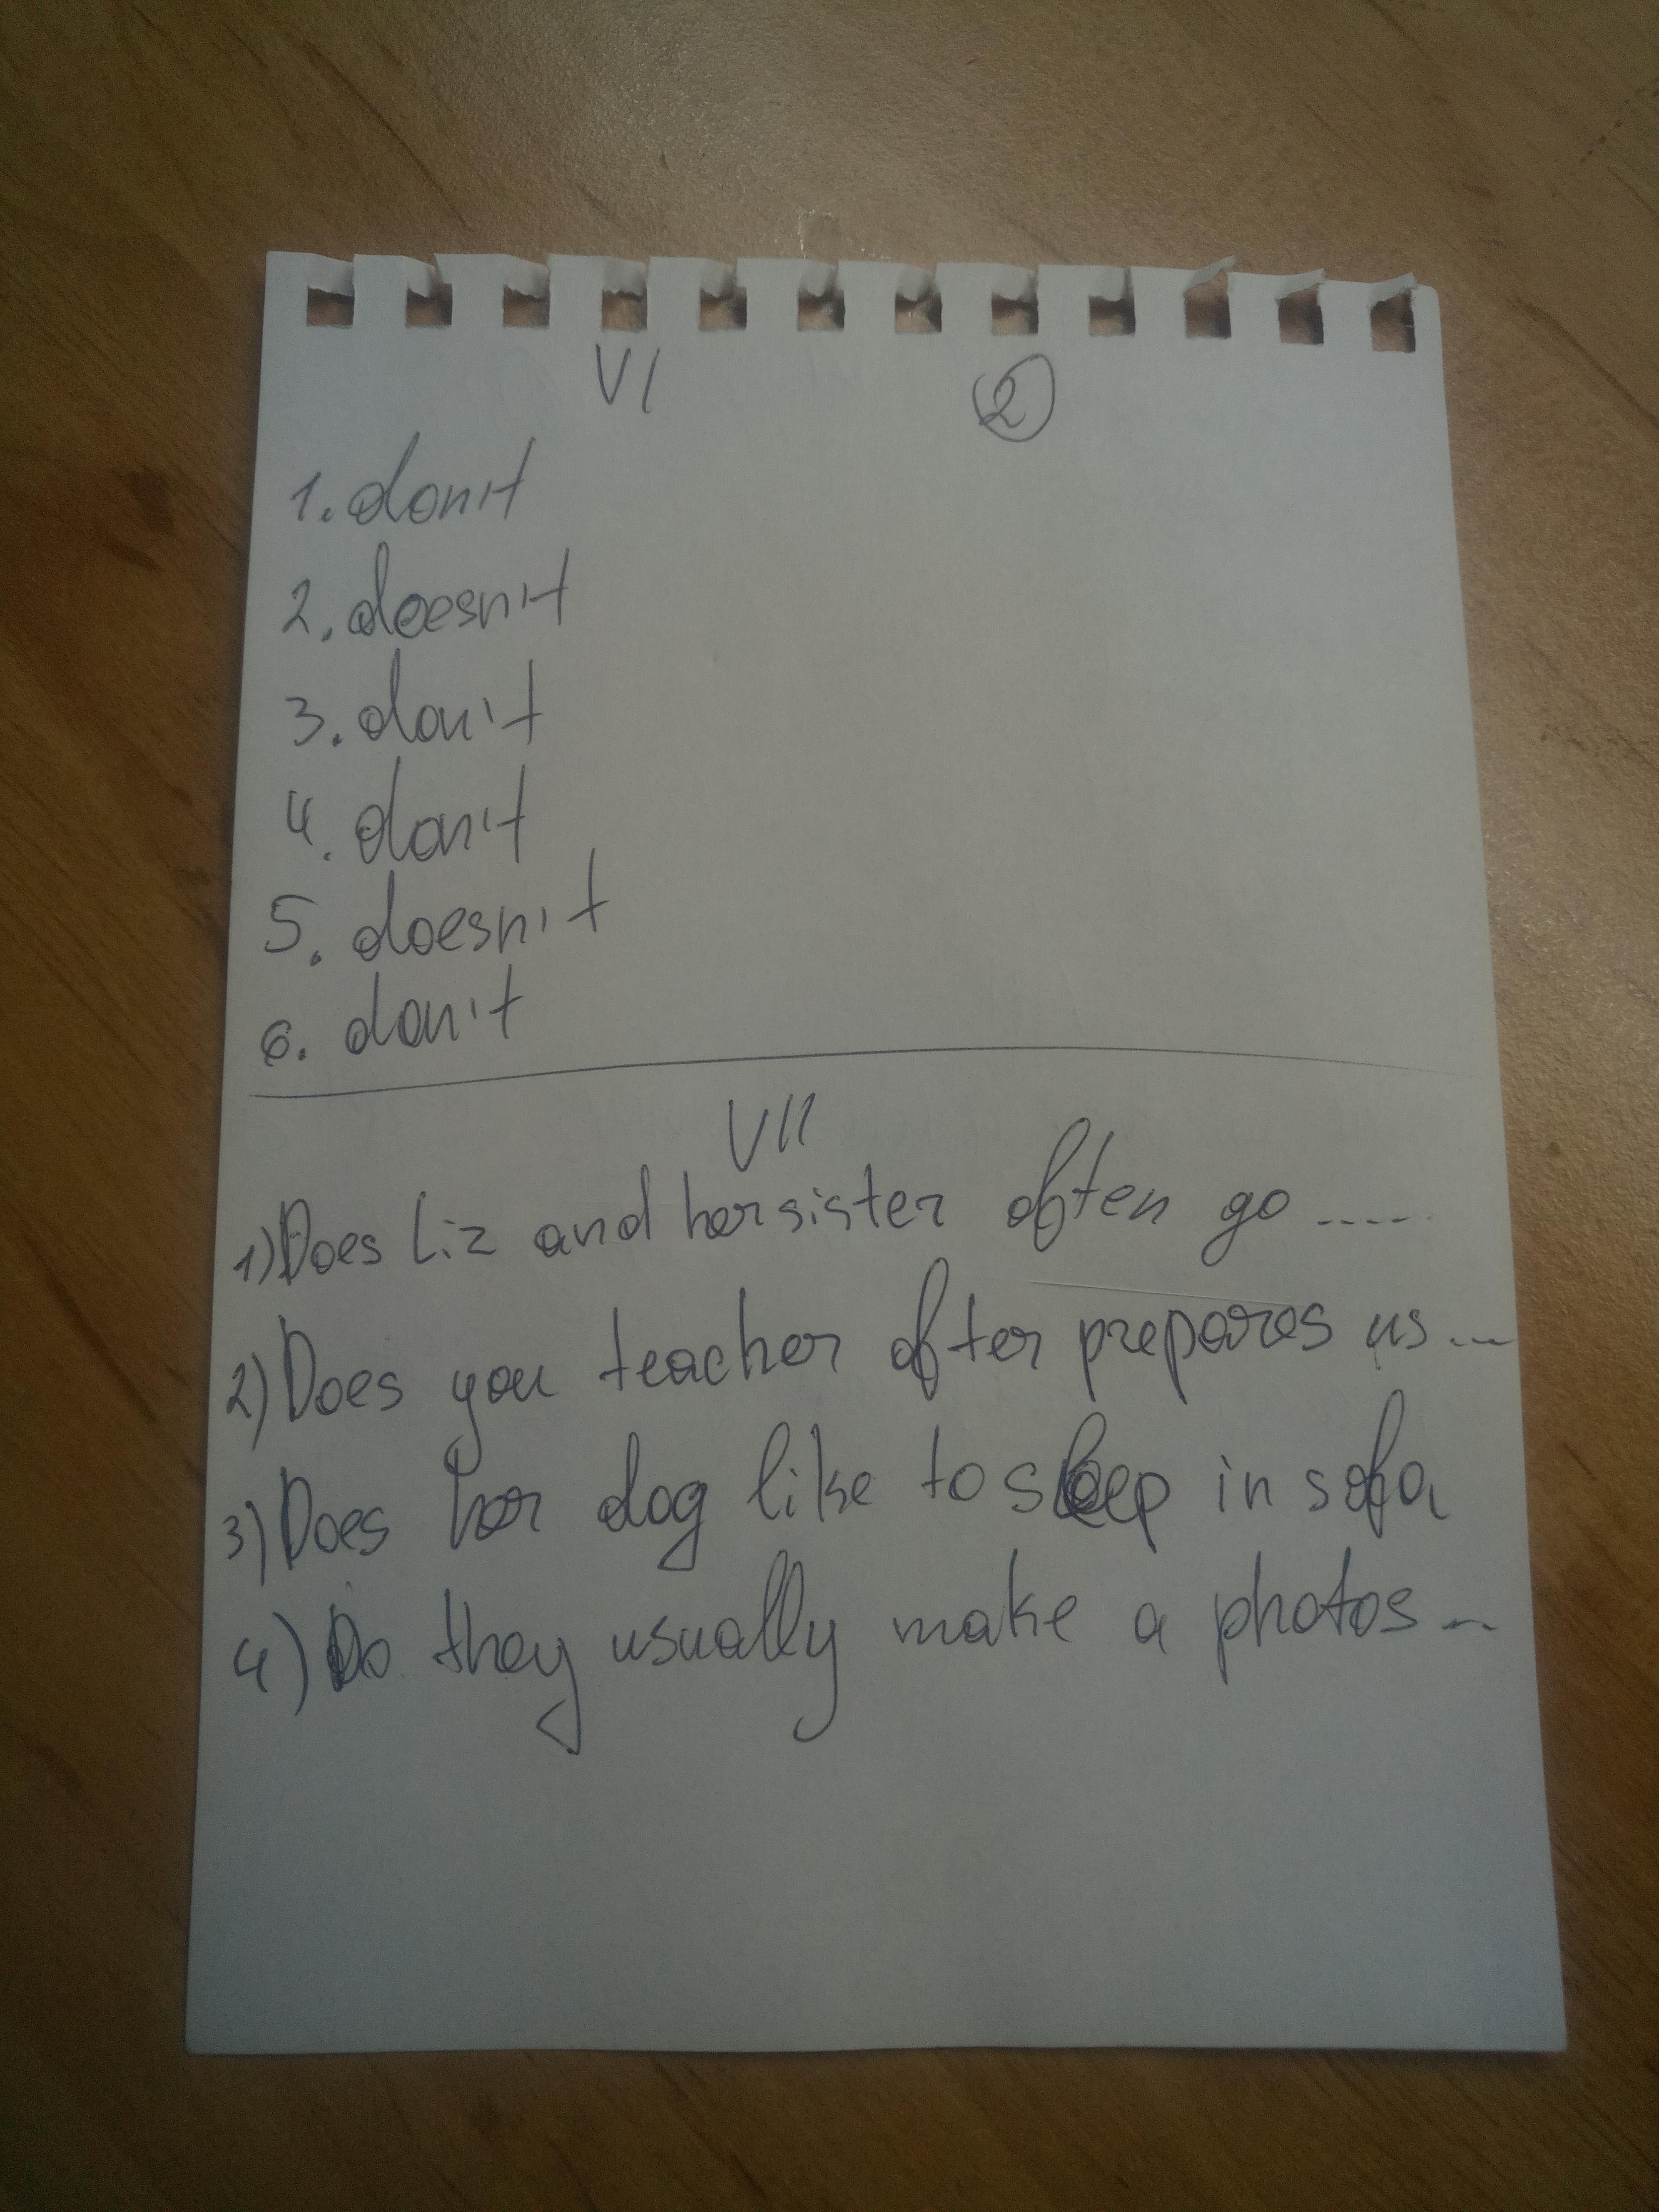 VI 2
1. don't
2. doesn't
3. don't
4. don't
5. doesn't
6. don't
VII
1) Does Liz and her sister often go .....
2) Does you teacher ofter prepares us ...
3) Does her dog like to sleep in sofa
4) Do they usually make a photos ...